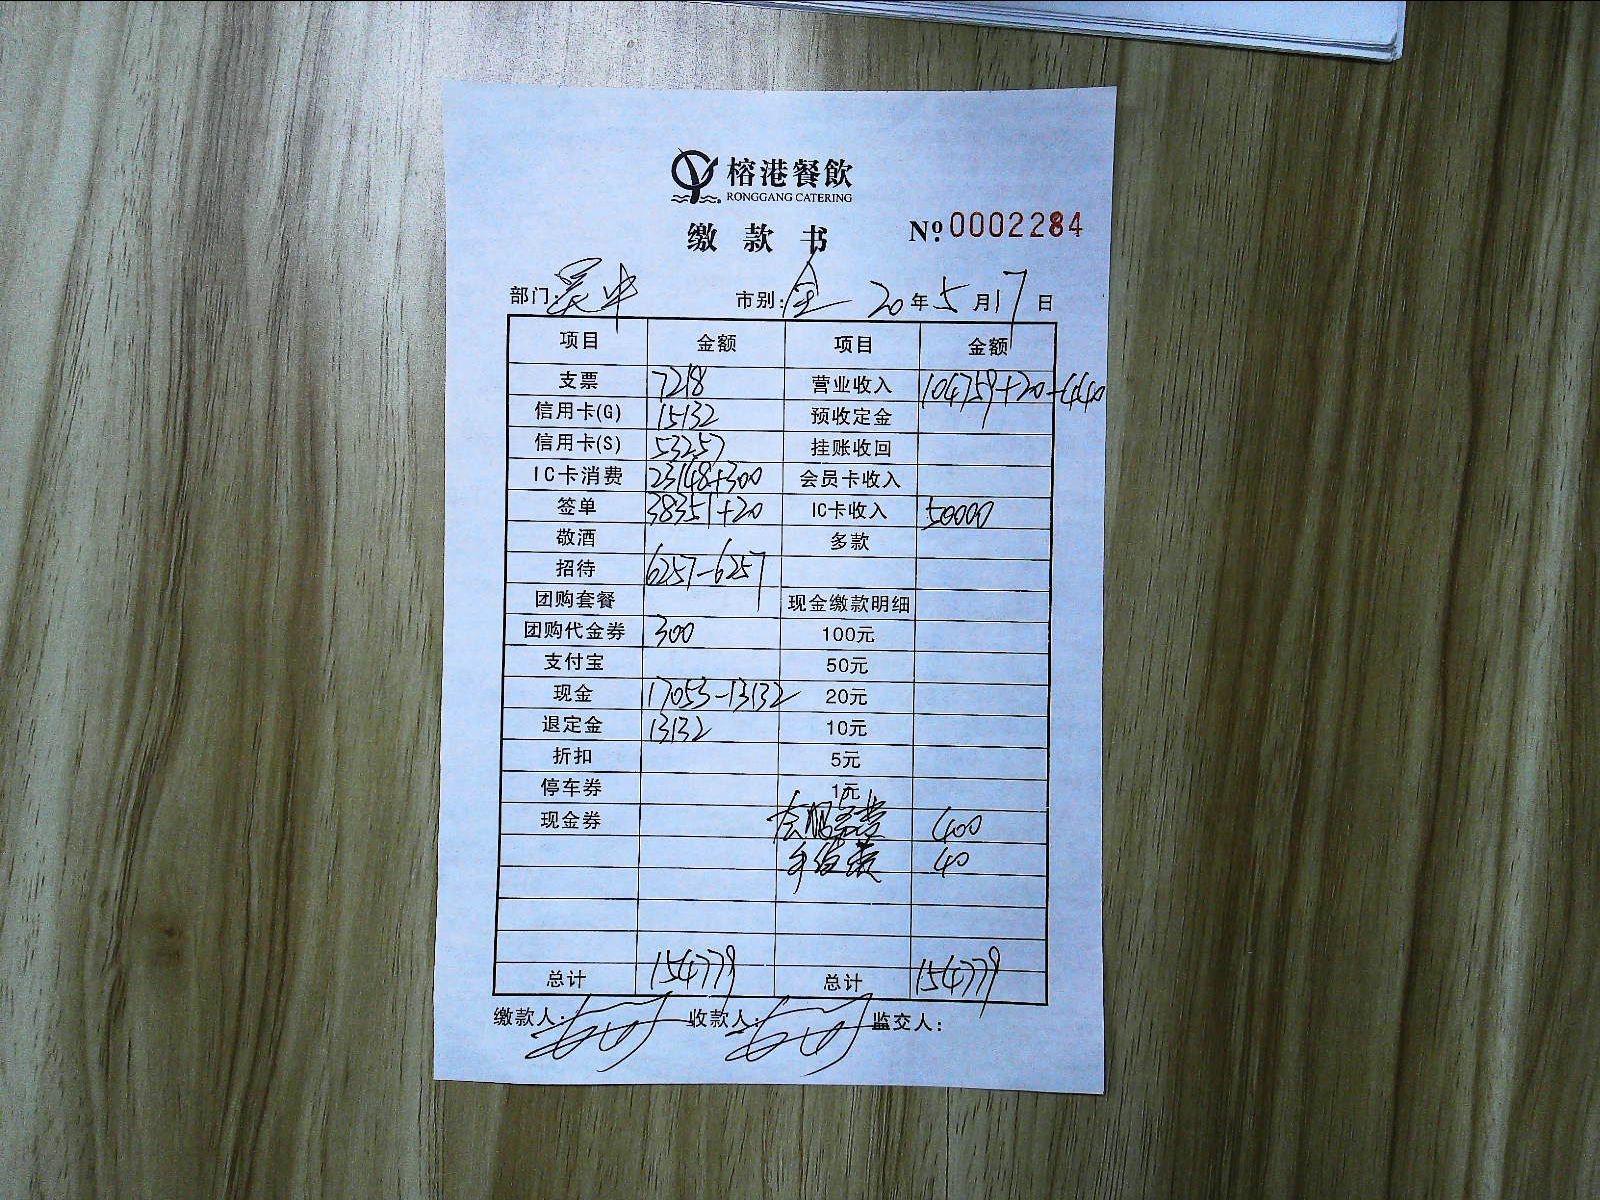 榕港餐飲
RONGGANG CATERING
缴款书 Nº.0002284
部门:吴中 市别:全 20年5月17日
项目 金额 项目 金额
支票 7218 营业收入 104759+20-440
信用卡(G) 15132 预收定金
信用卡(S) 53257 挂账收回
IC卡消费 23148+300 会员卡收入
签单 38351+20 IC卡收入 50000
敬酒 多款
招待 6257-6257
团购套餐 现金缴款明细
团购代金券 300 100元
支付宝 50元
现金 17053-13132 20元
退定金 13132 10元
折扣 5元
停车券 1元
现金券 服务费 400
手续费 40
总计 154779 总计 154779
缴款人: 收款人: 监交人: